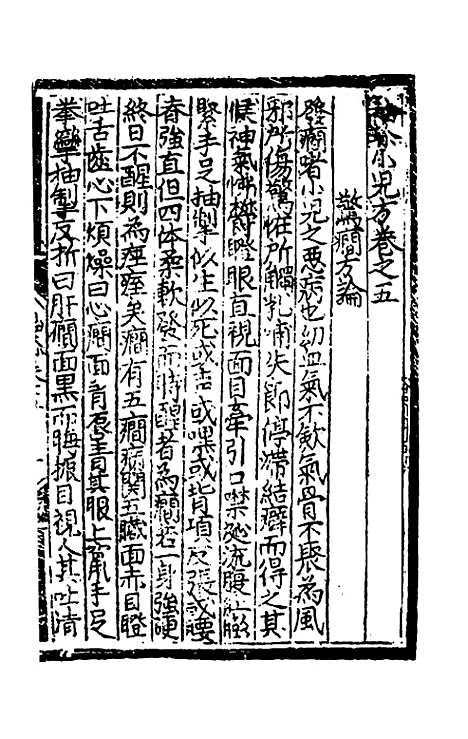 小兒方卷之五
驚癇方論
發癇者小兒之惡病也幼小血氣不斂氣骨不聚為風
邪所傷驚怪所觸乳哺失節停滯結癖而得之其
候神氣怫鬱瞪眼直視面目牽引口噤涎流腹肚
緊手足抽掣似生似死或聲或噤或背項反張或腰
脊強直但四体柔軟發而時醒者為癇若一身強硬
終日不醒則為痓痙矣癇有五癇病関五臟面赤目瞪
吐舌齧心下煩燥曰心癇面唇青其眼上竄手足
拳攣抽掣反折曰肝癇面黑而晦振目視人其吐清